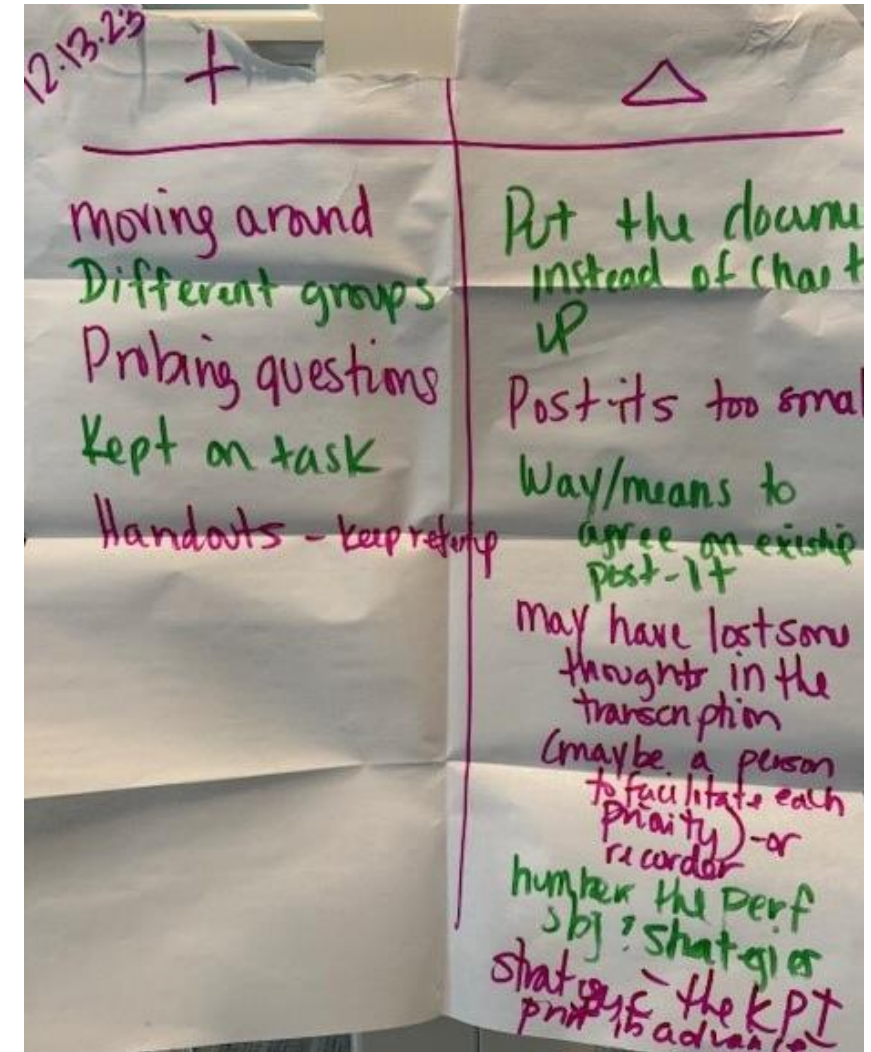 12.13.23
+
△
moving around
Different groups
Probing questions
Kept on task
Handouts - keep
Put the docume
instead of Chart
up
Post-its too smal
Way/means to
agree on
post-it
may have lost some
thoughts in the
transcription
(maybe a person
to facilitate each
priority) - or
recorder
number the perf
obj & strategies
the KPI
in advance